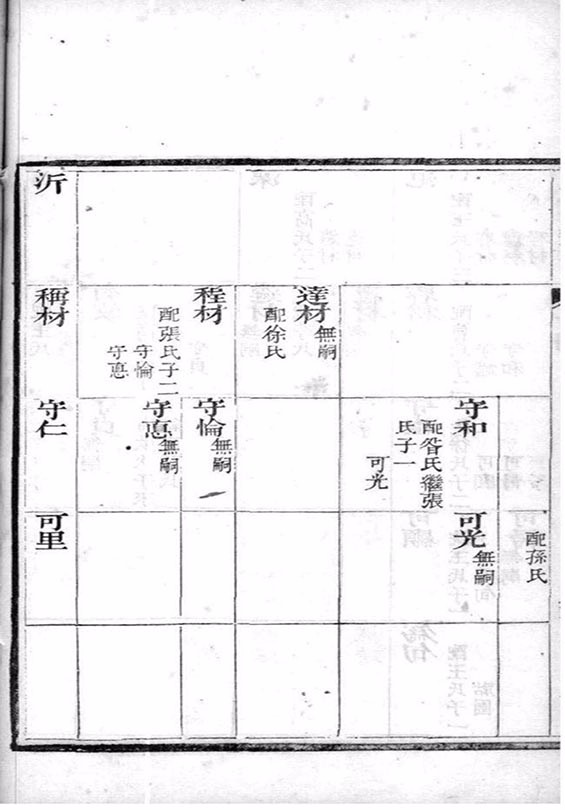 配孫氏
守和
配昝氏繼張
氏子一
可光
可光
無嗣
達材
無嗣
配徐氏
程材
配張氏子二
守惀
守惪
守惀
無嗣
守惪
無嗣
沂
稱材
守仁
可里